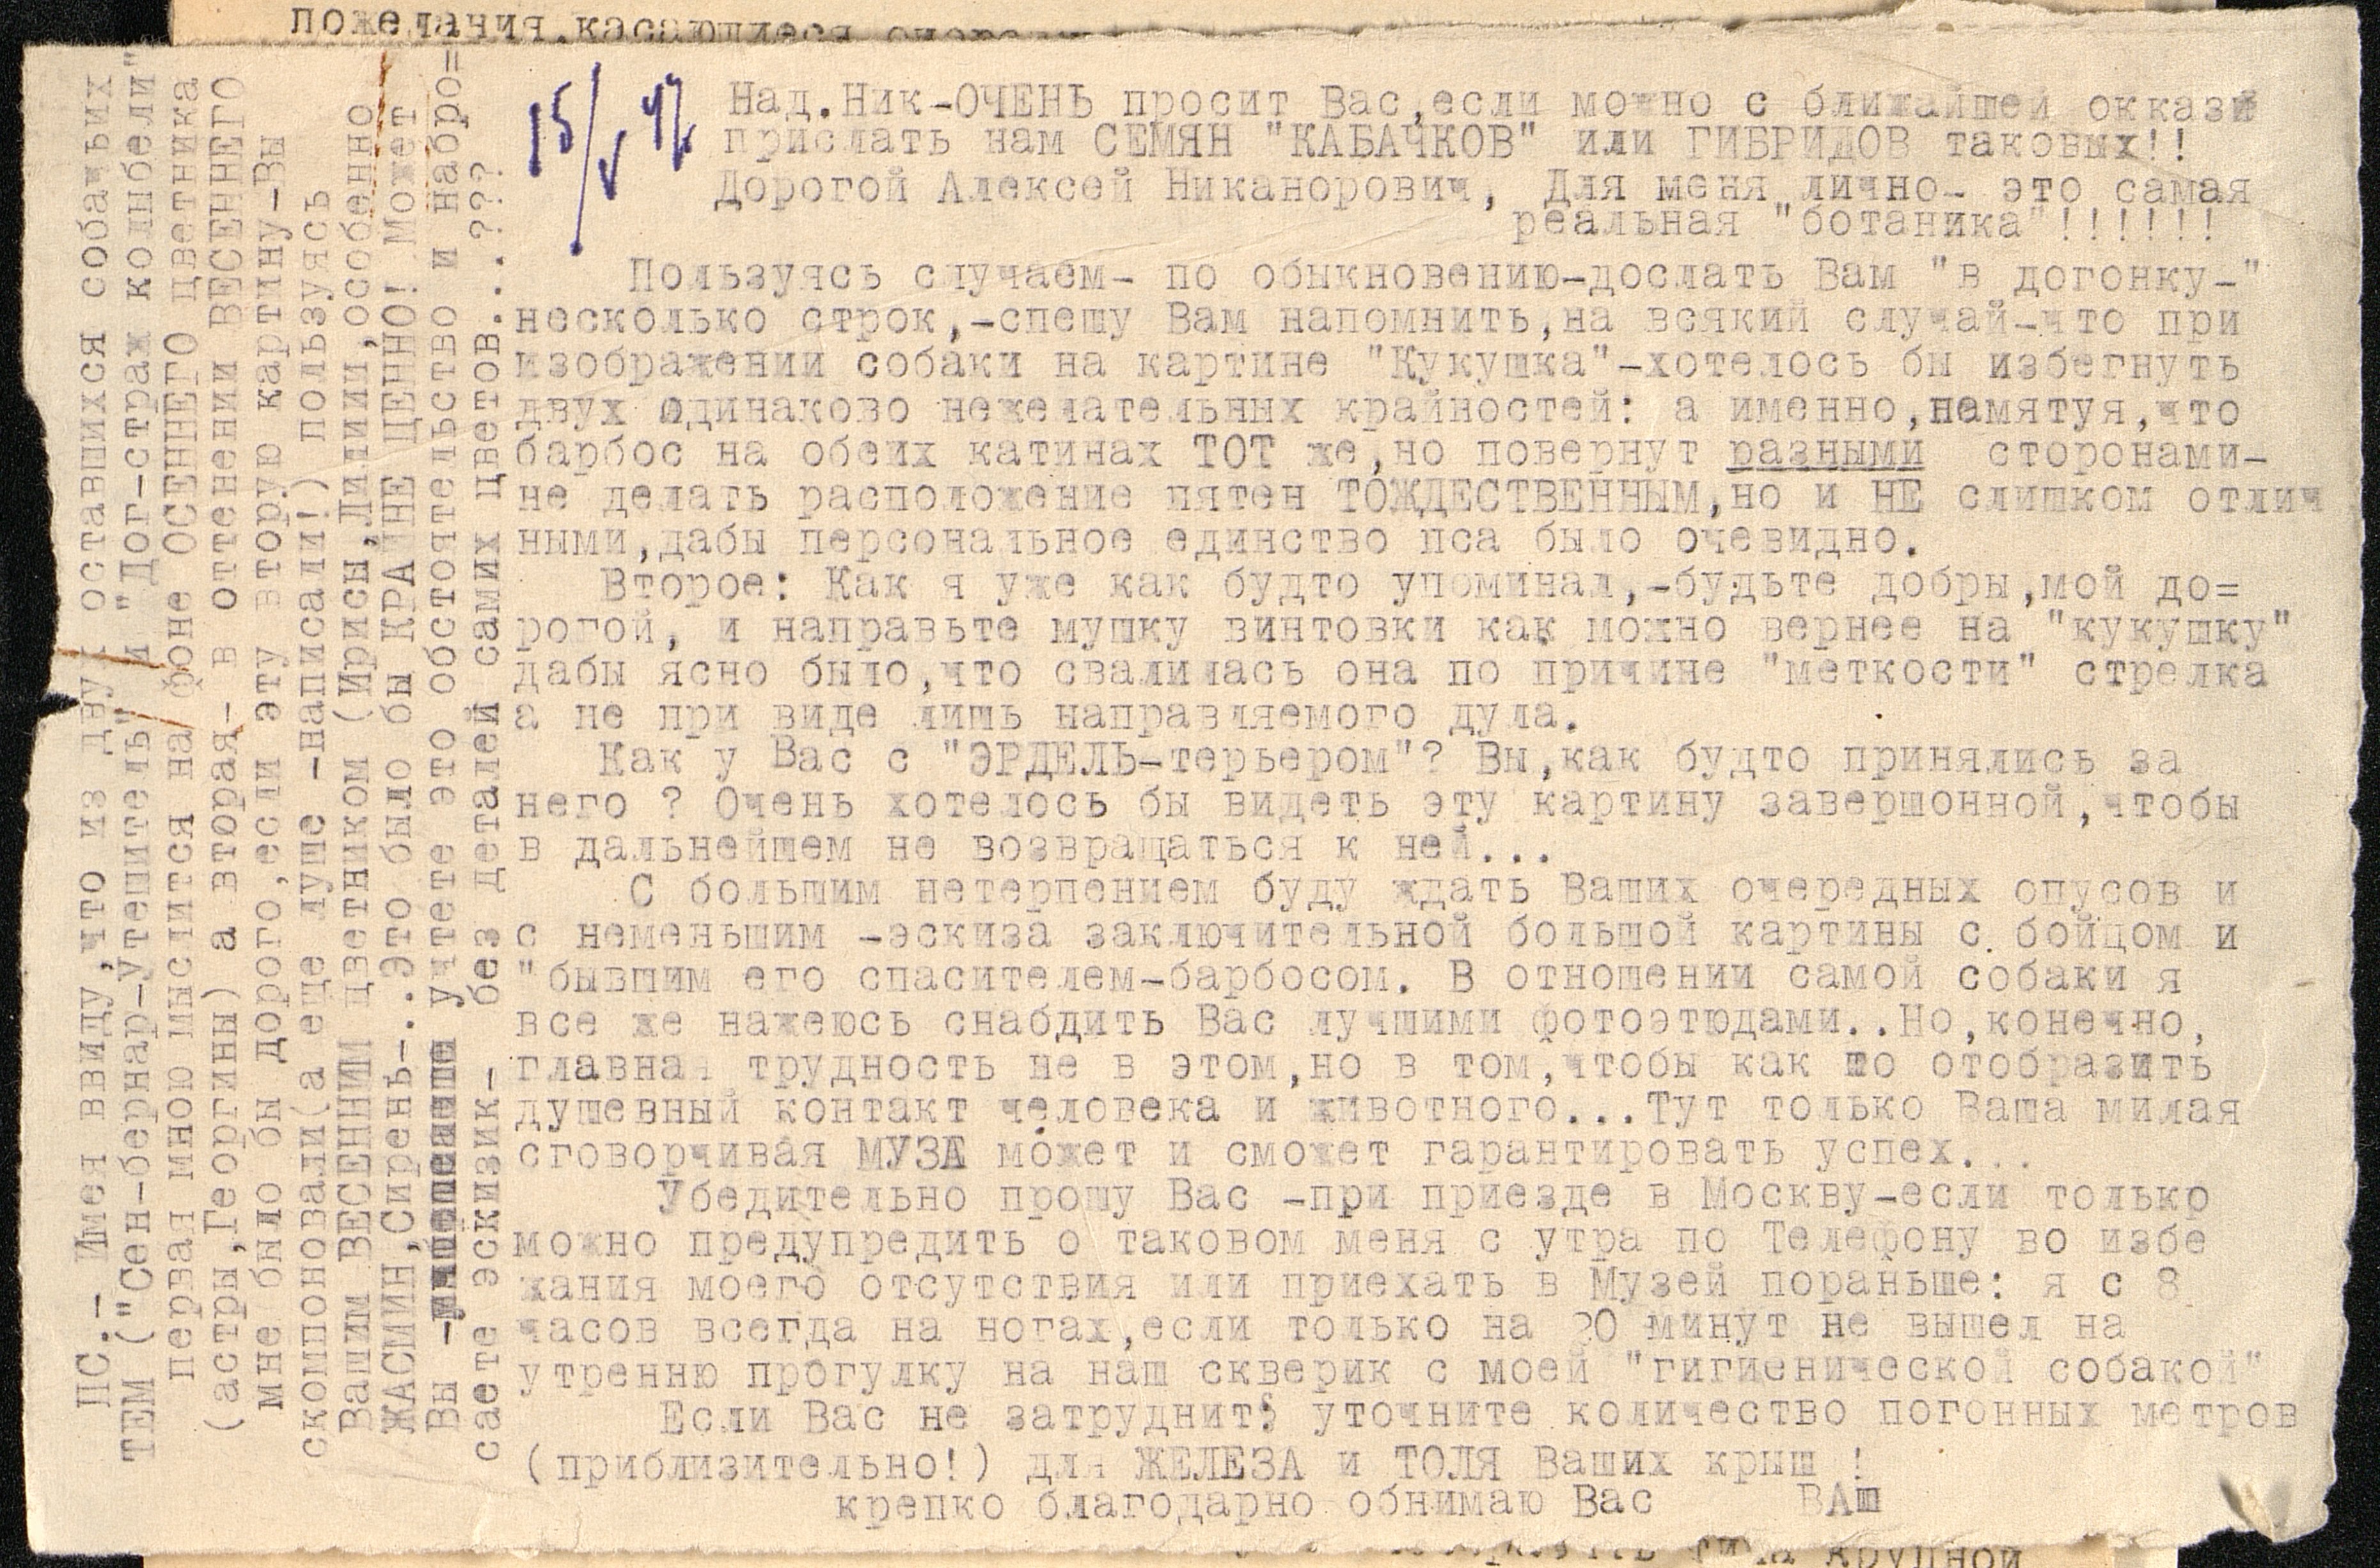 пожелания, касающиеся
15/V 47
Над.Ник-ОЧЕНЬ просит Вас,если можно с ближайшей окказий
прислать нам СЕМЯН "КАБАЧКОВ" или ГИБРИДОВ таковых!!
Дорогой Алексей Никанорович, Для меня лично- это самая
реальная "ботаника"!!!!!!
Пользуясь случаем- по обыкновению-дослать Вам "в догонку-"
несколько строк,-спешу Вам напомнить,на всякий случай-что при
изображении собаки на картине "Кукушка"-хотелось бы избегнуть
двух одинаково нежелательных крайностей: а именно,памятуя,что
барбос на обеих катинах ТОТ же,но повернут разными сторонами-
не делать расположение пятен ТОЖДЕСТВЕННЫМ,но и НЕ слишком отлич
ными,дабы персональное единство пса было очевидно.
Второе: Как я уже как будто упоминал,-будьте добры,мой до=
рогой, и направьте мушку винтовки как можно вернее на "кукушку"
дабы ясно было,что свалилась она по причине "меткости" стрелка
а не при виде лишь направляемого дула.
Как у Вас с "ЭРДЕЛЬ-терьером"? Вы,как будто принялись за
него ? Очень хотелось бы видеть эту картину завершонной,чтобы
в дальнейшем не возвращаться к ней...
С большим нетерпением буду ждать Ваших очередных опусов и
с неменьшим -эскиза заключительной большой картины с бойцом и
"бывшим его спасителем-барбосом. В отношении самой собаки я
все же нажеюсь снабдить Вас лучшими фотоэтюдами..Но,конечно,
главная трудность не в этом,но в том,чтобы как то отобразить
душевный контакт человека и животного...Тут только Ваша милая
сговорчивая МУЗА может и сможет гарантировать успех...
Убедительно прошу Вас -при приезде в Москву-если только
можно предупредить о таковом меня с утра по Телефону во избе
жания моего отсутствия или приехать в Музей пораньше: я с 8
часов всегда на ногах,если только на 20 минут не вышел на
утренню прогулку на наш скверик с моей "гигиенической собакой"
Если Вас не затруднит; уточните количество погонных метров
(приблизительно!) для ЖЕЛЕЗА и ТОЛЯ Ваших крыш !
крепко благодарно обнимаю Вас ВАш
ПС.- Имея ввиду,что из двух оставшихся собачьих
ТЕМ ("Сен-бернар-Утешитель" и "Дог-страж колыбели"
первая мною мыслится на фоне ОСЕННЕГО цветника
(астры,Георгины) а вторая- в оттенении ВЕСЕННЕГО
мне было бы дорого,если эту вторую картину-Вы
скомпоновали(а еще луше -написали!) пользуясь
Вашим ВЕСЕННИМ цветником (Ирисы,Лилии,особенно
ЖАСМИН,Сирень-..Это было бы КРАЙНЕ ЦЕННО! Может
Вы - учтете это обстоятельство и набро=
саете эскизик- без деталей самих цветов...???
крупной